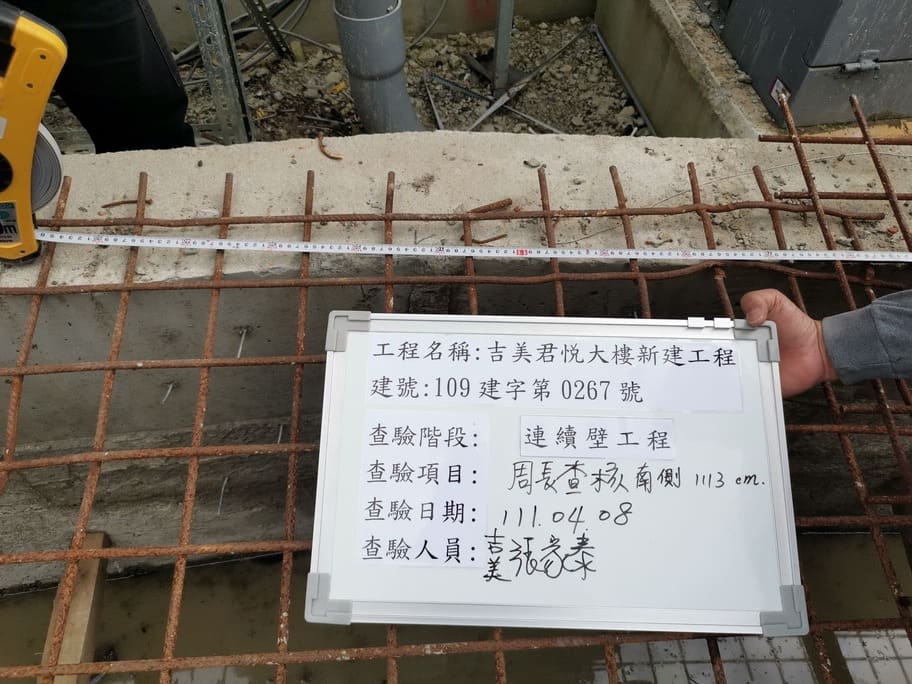 工程名稱:吉美君悦大樓新建工程
建號:109建字第0267號
查驗階段: 連續壁工程
查驗項目: 周長查核南側 1113 cm.
查驗日期: 111.04.08
查驗人員: 吉美